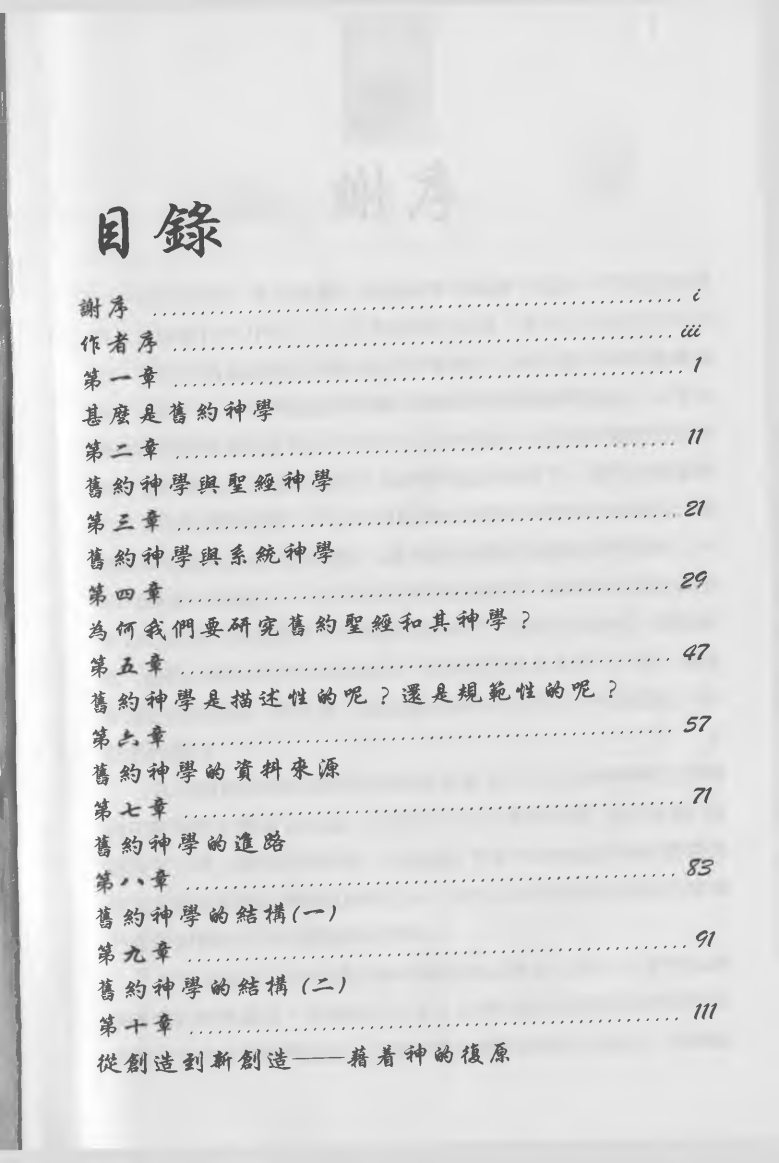 目錄
謝序 ........................................................ i
作者序 ..................................................... iii
第一章 ...................................................... 1
甚麼是舊約神學
第二章 ..................................................... 11
舊約神學與聖經神學
第三章 ..................................................... 21
舊約神學與系統神學
第四章 ..................................................... 29
為何我們要研究舊約聖經和其神學？
第五章 ..................................................... 47
舊約神學是描述性的呢？還是規範性的呢？
第六章 ..................................................... 57
舊約神學的資料來源
第七章 ..................................................... 71
舊約神學的進路
第八章 ..................................................... 83
舊約神學的結構(一)
第九章 ..................................................... 91
舊約神學的結構(二)
第十章 ..................................................... 111
從創造到新創造——藉着神的復原